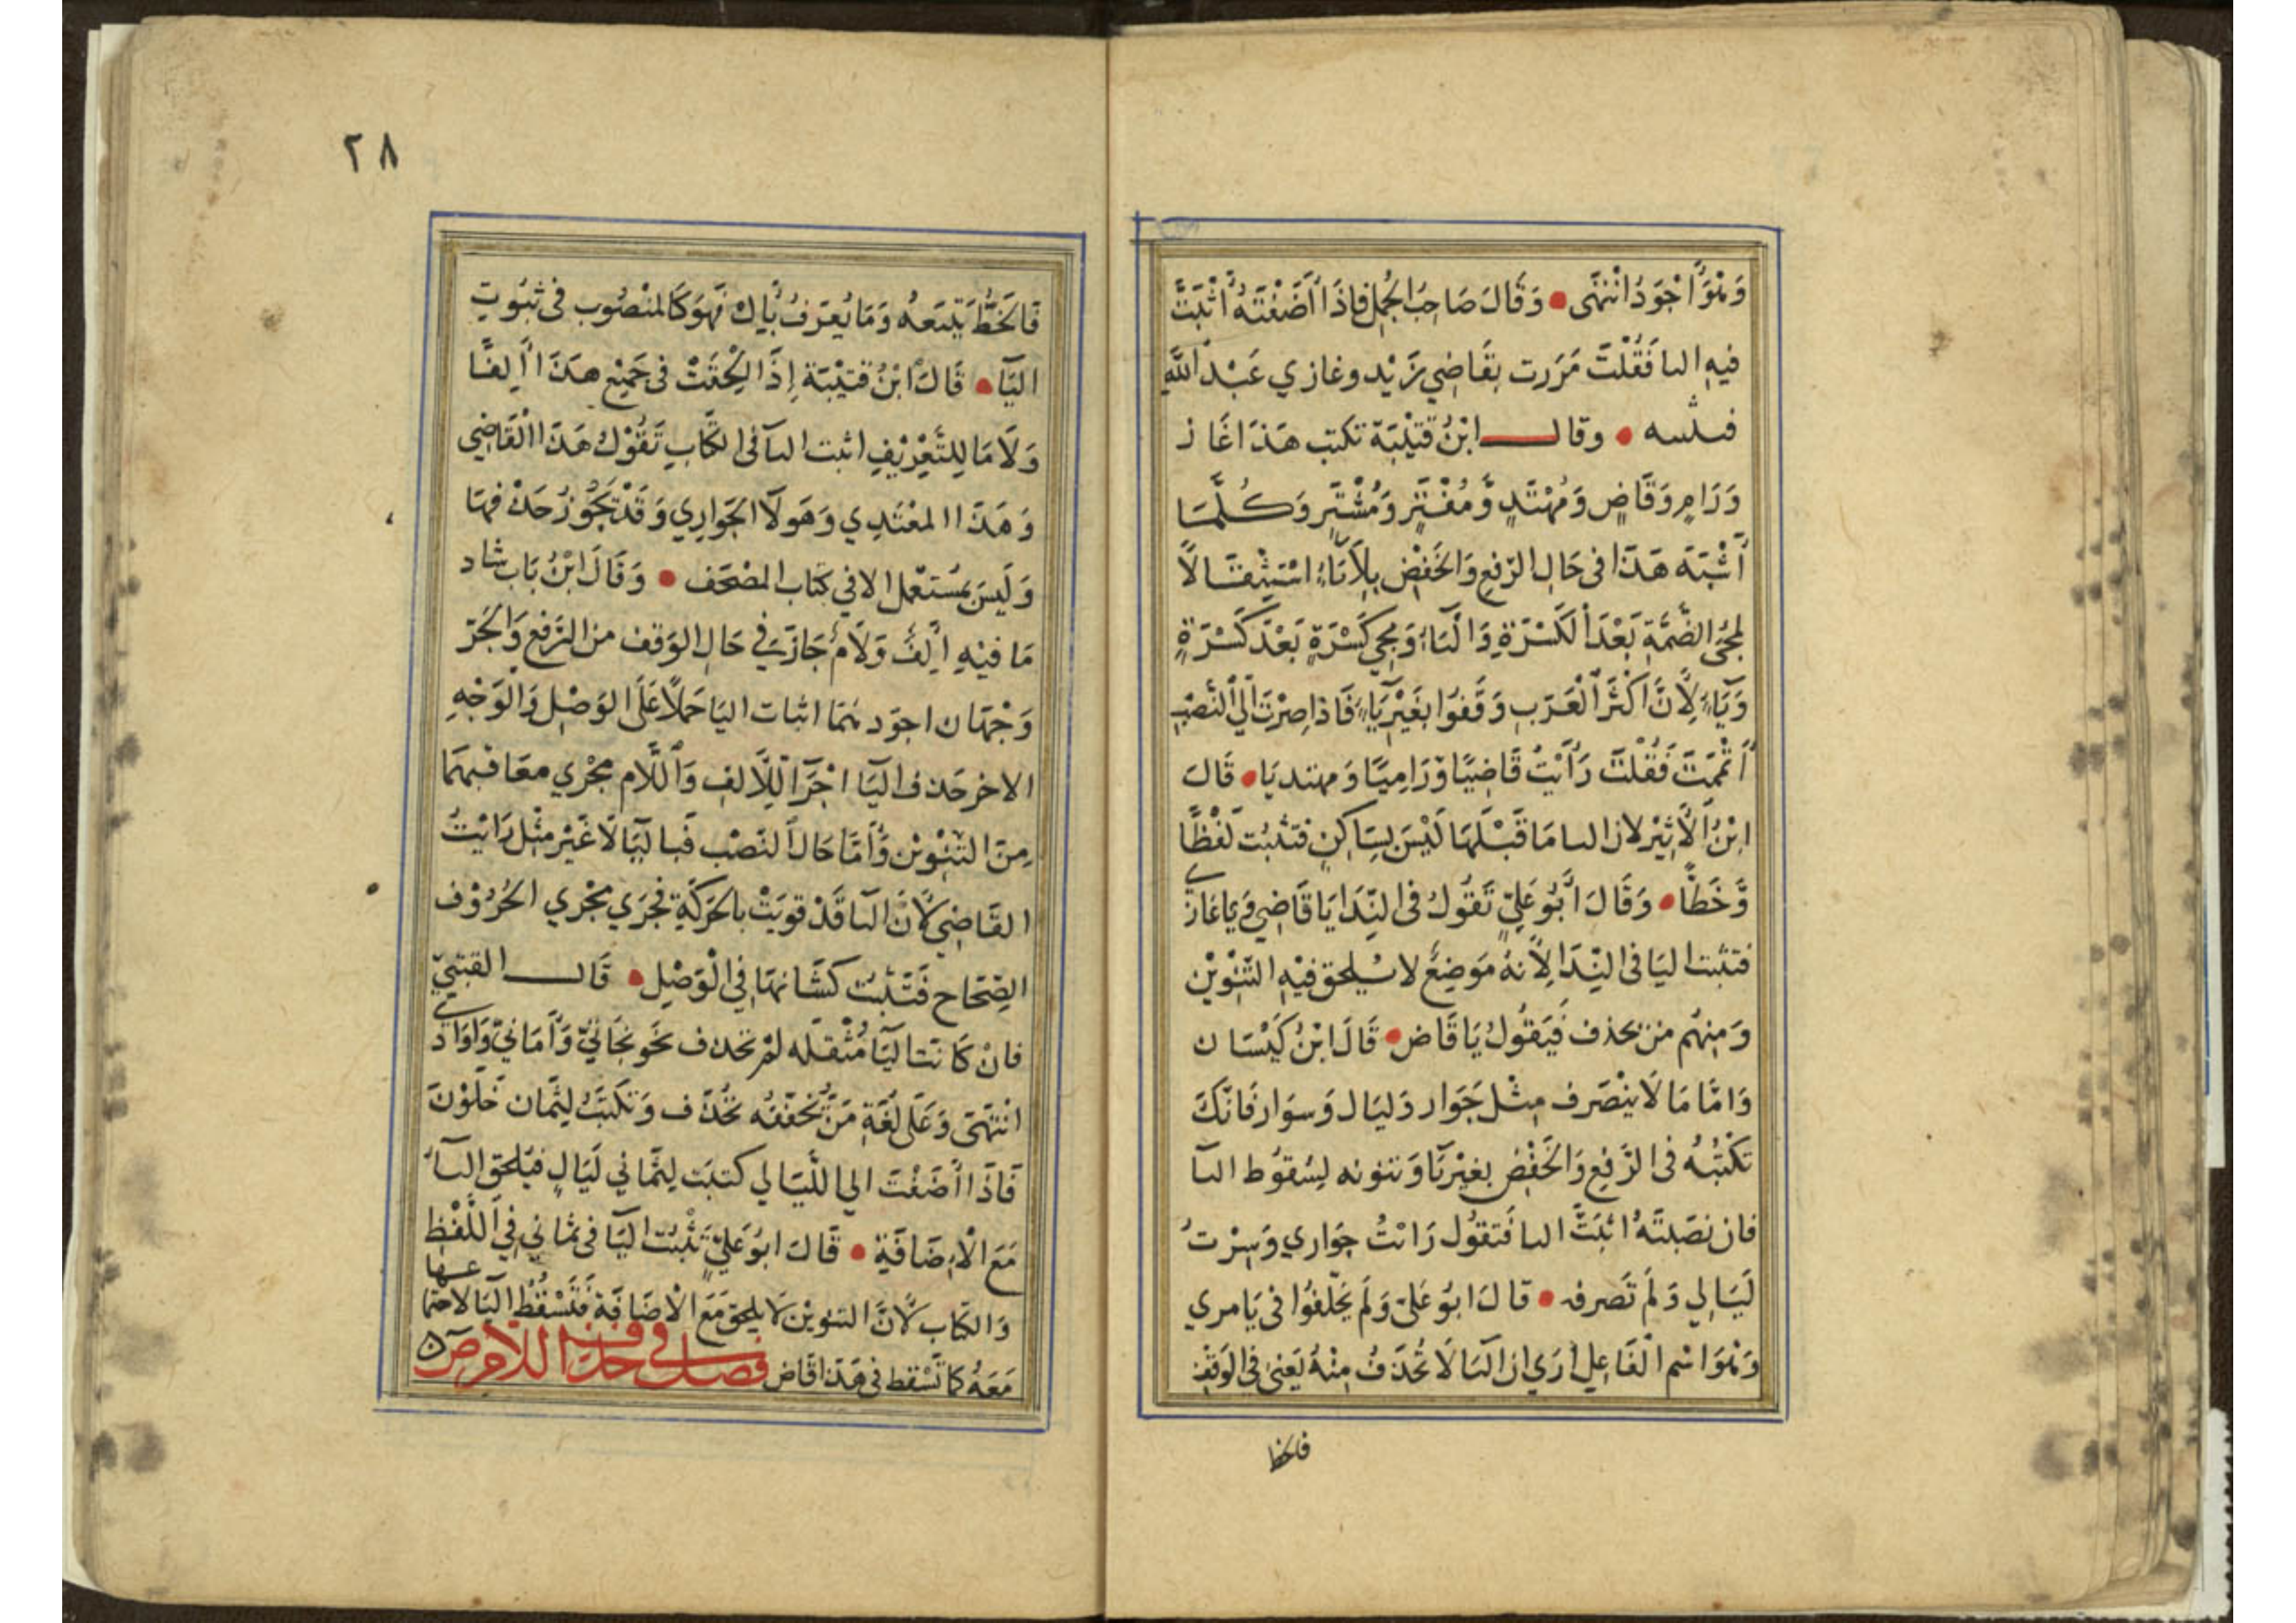 وَهُوَ اَجْوَدُ انْتَهَى • وَقَالَ صَاحِبُ الْجُمَلِ فَاِذَا اَضَفْتَهُ اَثْبَتَّ
فِيهِ اليا فَقُلْتَ مَرَرت بِقَاضِي زَيْد وغازي عَبْدُ اللَّهِ
• وقال ابْنُ قُتَيْبَة تكتب هَذَا غَازٍ
وَرَامٍ وَقَاضٍ وَمُهْتَدٍ وَمُفْتَرٍ وَمُشْتَرٍ وَكُلَّمَا
اَشْبَهَ هَذَا فى حَالِ الرَّفْعِ وَالْخَفْضِ بِلَا يَاءٍ اسْتِثْقَالًا
لِمَجِيءِ الضَّمَّةِ بَعْدَ الْكَسْرَةِ وَالْيَاءِ وَمَجِي كَسْرَةٍ بَعْدَ كَسْرَةٍ
وَيَاءٍ لِاَنَّ اَكْثَرَ الْعَرَبِ وَقَفُوا بِغَيْرِ يَاءٍ فَاذا صِرْتَ اِلَى النَّصْبِ
اَتْمَمْتَ فَقُلْتَ رَاَيْتُ قَاضِيًا وَرَامِيًا وَمهتديَا • قَالَ
ابْنُ الْاَثِيْرِ لان اليا مَا قَبْلَهَا لَيْسَ بِسَاكِنٍ فتثبُت لَفْظًا
وَّخَطًّا • وَقَالَ اَبُو عَلِيٍّ تَقُولُ فى النِّدَا يَا قَاضِي وَيا غَازي
فتثبت اليا فى النِّدَا لِاَنهُ مَوَضِعٌ لا يلحق فِيْهِ التَّنْوِيْن
وَمِنهُم من يحذف فَيَقُولُ يَا قَاض • قَالَ ابْنُ كَيْسَان
وَامَّا مَا لَا يَنْصَرف مِثْل جَوَار وَليَال وَسوَار فَانّكَ
تَكْتُبُهُ فى الرَّفعِ وَالْخَفْضِ بغيْر يَا وَتنونه لِسُقوُط اليا
فان نصَبتَهُ اثبَتَّ اليا فَتقُول رَاَيْتُ جَوَاري وَسِرْتُ
لَيَالِي وَلَمْ تَصرفه • قالَ ابوُ عَليّ وَلَمْ يَخْلِفُوا فى يَا مرى
وَهُوَ اسْم الْفَاعِل اَرَي ان اليَا لَا تُحْذَفُ مِنْهُ يَعْنى فِى الوَقْفِ
فالخط
٢٨
فَالخَطُّ يَتبَعهُ وَمَا يُعَرفُ بُاِلْ فَهُوَ كَالمنْصُوب فى ثبُوت
اليَا • قَالَ ابْنُ قتَيْبَة إِذَا اَلْحَقَتْ فى جَمِيْع هَذَا اَلِفًا
وَلَامًا لِلتَّعْرِيْفِ اثبت اليا فى الكَّابِ تَقُوْلُ هَذَا القَاضِي
وَ هَذَا المعْتَدِي وَهَولَا الجَوَارِي وَقَدْ يَجُوْزُ حَذفهَا
وَلَيسَ بِمسْتَعْمل الا في كتَاب المصْحَف • وَقَالَ ابْنُ بَاب شاد
مَا فيْهِ اَلِفٌ وَلَامٌ جَازَ فِي حَالِ الوَقف من الرَّفع وَالجَرّ
وَجْهَان اجوَد هُمَا اثبات اليَا حَملًا عَلَى الوَصْلِ وَالْوَجْهِ
الاخر حَذف اليَا اجْرَا لِلاَلفِ وَاللَّام مجْري معَاقبهمَا
مِنَ التَّنْوِيْن وَاَمَّا حَال النَصْب فَبا ليَا لَا غَيْر مثْل رَايْتُ
القَاضِيَ لَاَنَّ اليا قَدْ قويَتْ بالحَرَكَةِ فجرَي مجْري الحُرُوْف
الصِّحَاح فَتَثْبُت كَشَانهَا فِي الْوَصْلِ • قَال القتبيّ
فانْ كَا نَت اليَا مُثْقَلَه لمْ تحذف نحَو بُخَاتيَّ وَاَمَانيَّ وَاَوَادي
انْتَهَى وَعَلَى لغَةِ مَنْ يُخَفّفهُ تحْذَف وَتكَتبُ لِثَمان خَلَوْنَ
فَاذَا اَضَفْتَ الى اللَّيَالي كتبَت لِثَمَاني لَيَالٍ فيُلحق اليَاءُ
مَعَ الْاِضَافَةِ • قَالَ ابوُ عَليٍّ تَثْبُت اليَا فى ثَمَاني فِي اللَّفْظِ
وَالكتَاب لَاَنَّ التنويْن لَا يلحق مَعَ الْاضَافَةِ فَتَسْقُطُ اليَا لاجتماعها
مَعَهُ كما تَسْقط فى هَذا قَاض فصل في حذف اللام ص